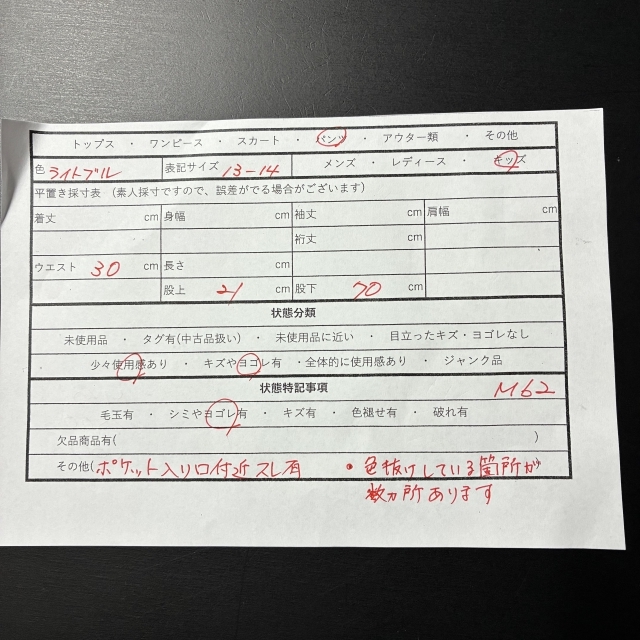 トップス ・ ワンピース ・ スカート ・ パンツ ・ アウター類 ・ その他
色 ライトブル 表記サイズ 13-14 メンズ ・ レディース ・ キッズ
平置き採寸表 （素人採寸ですので、誤差がでる場合がございます）
着丈 cm 身幅 cm 袖丈 cm 肩幅 cm
裄丈 cm
ウエスト 30 cm 長さ cm
股上 21 cm 股下 70 cm
状態分類
未使用品 ・ タグ有(中古品扱い) ・ 未使用品に近い ・ 目立ったキズ・ヨゴレなし
少々使用感あり ・ キズやヨゴレ有 ・全体的に使用感あり ・ ジャンク品
状態特記事項 M62
毛玉有 ・ シミやヨゴレ有 ・ キズ有 ・ 色褪せ有 ・ 破れ有
欠品商品有( )
その他(ポケット入り口付近スレ有 ・色抜けしている箇所が
数ヵ所あります